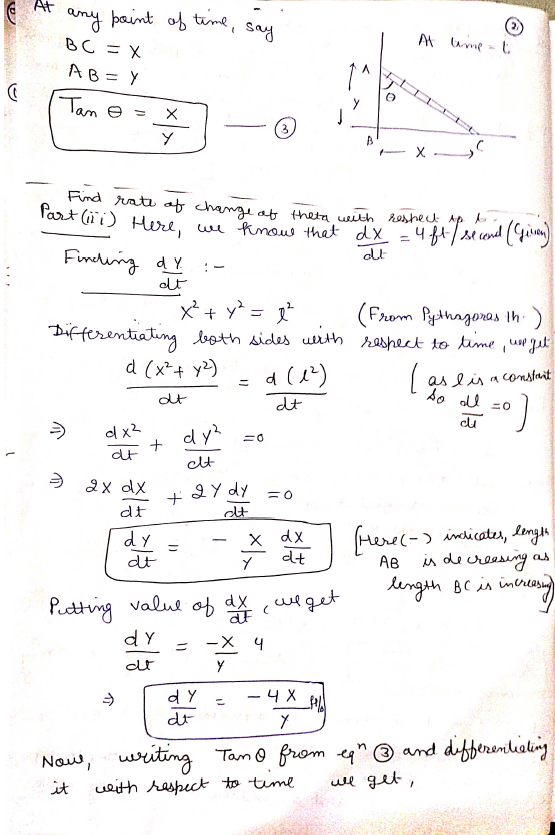 At any point of time, say
②
BC = X
At time = t
AB = Y
Tan θ = X/Y —— ③
A
θ
Y
B
X
C
Find rate of change of theta with respect to t.
Part (iii) Here, we know that dX/dt = 4 ft/second (Given)
Finding dY/dt :-
X² + Y² = l² (From Pythagoras th.)
Differentiating both sides with respect to time, we get
d(X² + Y²)/dt = d(l²)/dt [as l is a constant
so dl/dt = 0]
⇒ dX²/dt + dY²/dt = 0
⇒ 2X dX/dt + 2Y dy/dt = 0
dY/dt = - X/Y dX/dt [Here (-) indicates, length
AB is decreasing as
length BC is increasing]
Putting value of dX/dt, we get
dY/dt = -X/Y 4
⇒ dY/dt = -4X/Y ft/s
Now, writing Tan θ from eqⁿ ③ and differentiating
it with respect to time we get,